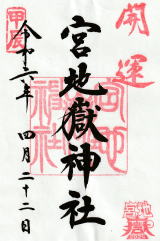 開運
宮地嶽神社
甲辰
令和六年 四月二十二日